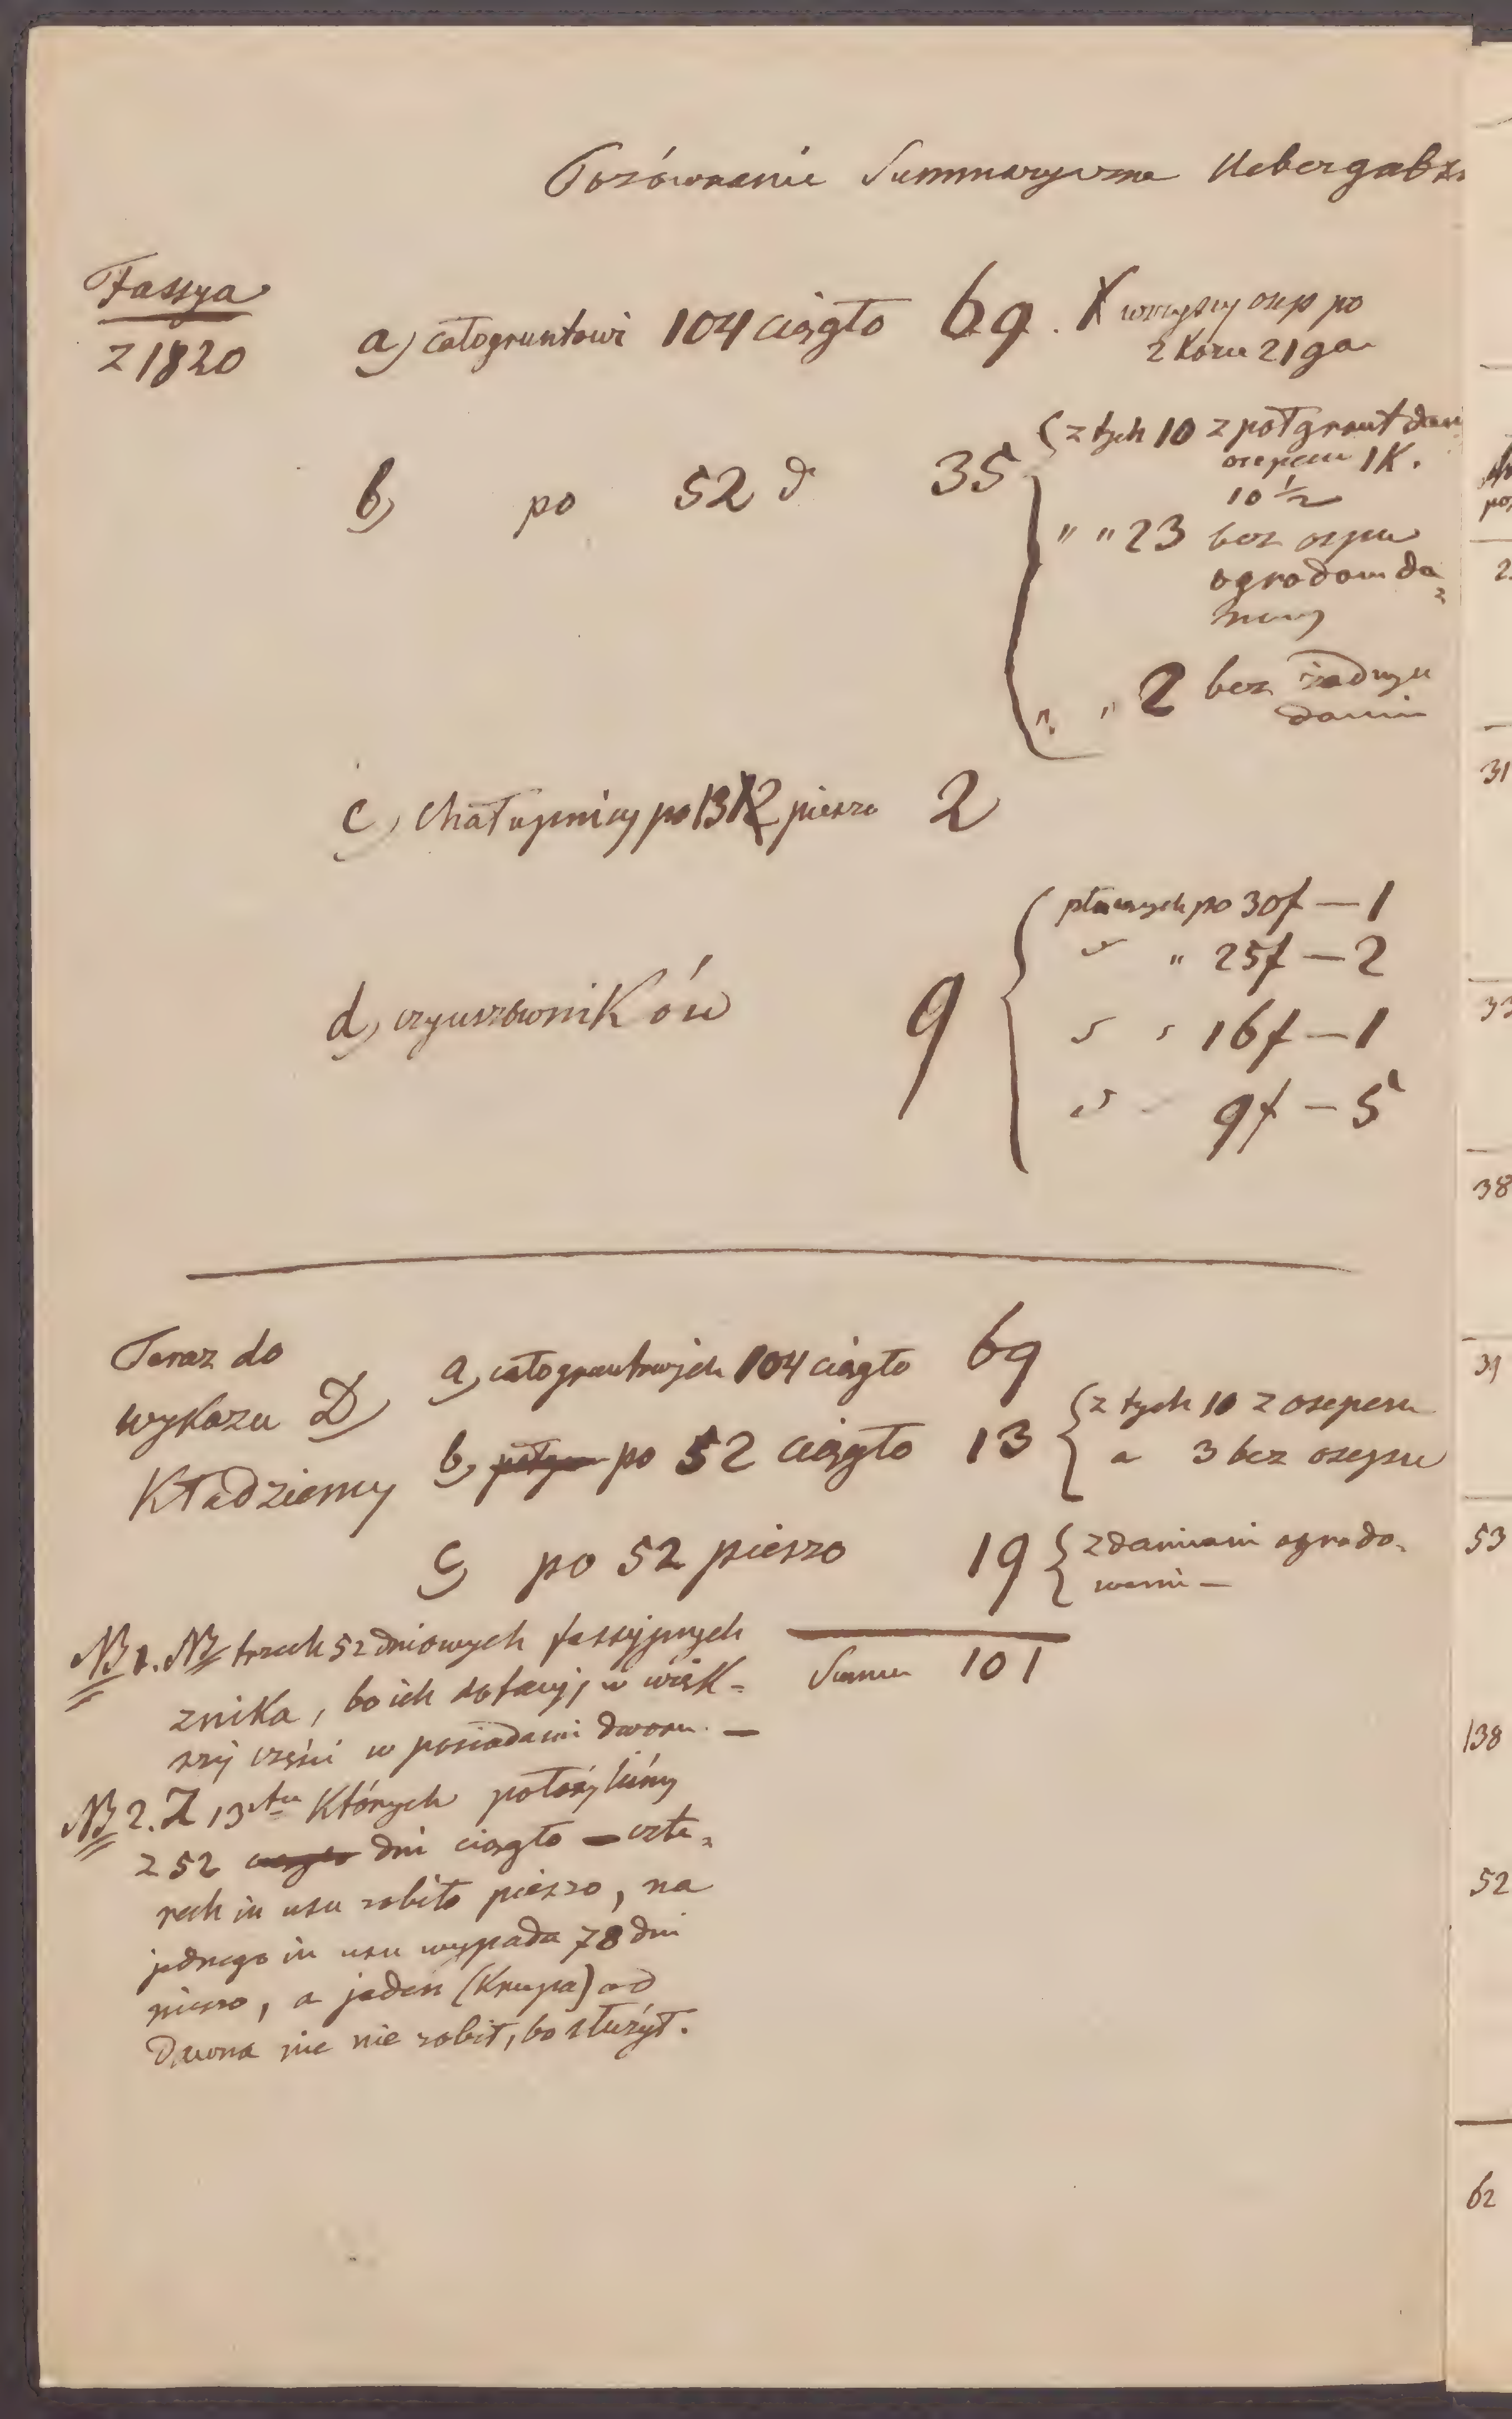 Porównanie Summaryczne Uebergabs
Fassya
z 1820
a) całogruntowi 104 ciągło 69. X wszyscy osep po
2 Korce 21 ga
b) po 52 d° 35 { z tych 10 z półgrunt dan
osepem 1K.
10 1/2
" " 23 bez ospu
ogrodow da=
niny
" " 2 bez żadnych
danin
c) Chałupnicy po 13 12 pieszo 2
d) czynszowników 9 { płacących po 30f — 1
" " 25f — 2
" " 16f — 1
" " 9f — 5
Teraz do
wykazu D)
Kładziemy
a) całogruntowych 104 ciągło 69
b) półgr po 52 ciągło 13 { z tych 10 z osepem
a 3 bez osepu
c) po 52 pieszo 19 { z daninami ogrodo-
wemi —
Summa 101
NB 1. NB trzech 52 dniowych fassyjnych
znika, bo ich dotacyj w więk=
szej części w posiadaniu dworu. —
NB 2. Z 13stu Których położyliśmy
z 52 ciągło dni ciągło — czte=
rech in usu robiło pieszo, na
jednego in usu wypada 78 dni
pieszo, a jeden (Krupa) od
dawna nic nie robił, bo służył.
31
38
53
138
52
62